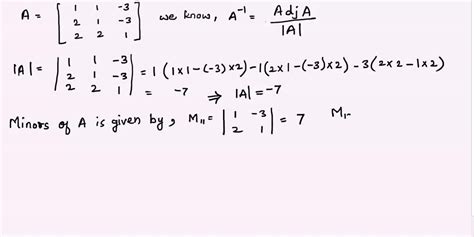 A = [ 1 1 -3 ; 2 1 -3 ; 2 2 1 ] we know, A⁻¹ = Adj A / |A|
|A| = | 1 1 -3 ; 2 1 -3 ; 2 2 1 | = 1 (1×1-(-3)×2)-1(2×1-(-3)×2)-3(2×2-1×2)
= -7 ⇒ |A| = -7
Minors of A is given by, M₁₁ = | 1 -3 ; 2 1 | = 7 M₁